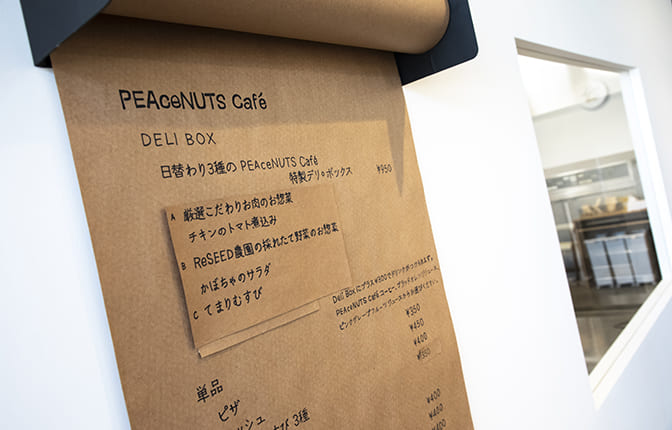 PEAceNUTS Café
DELI BOX
日替わり3種の PEAceNUTS Café
特製デリ・ボックス ¥950
A 厳選こだわりお肉のお惣菜
チキンのトマト煮込み
B ReSEED農園の採れたて野菜のお惣菜
かぼちゃのサラダ
C てまりむすび
Deli Boxにプラス¥300でドリンクがつけられます。
PEAceNUTS Caféコーヒー、ブラッドオレンジジュース、
ピンクグレープフルーツジュースからお選びください。
¥350
¥450
¥400
¥350
単品
ピザ ¥400
ッシュ ¥400
むすび 3種 ¥400